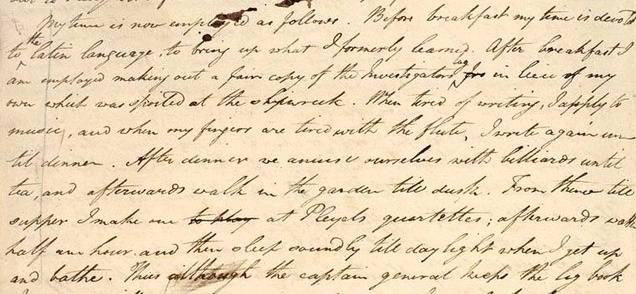 My time is now employed as follows. Before breakfast my time is devoted
to the latin language, to bring up what I formerly learned. After breakfast I
am employed making out a fair copy of the Investigators log in lieu of my
own which was spoiled at the shipwreck. When tired of writing, I apply to
music, and when my fingers are tired with the flute, I write again un
til dinner. After dinner we amuse ourselves with billiards until
tea, and afterwards walk in the garden till dusk. From thence till
supper I make one to play at Pleyels quartettes; afterwards walk
half an hour and then sleep soundly till day light when I get up
and bathe. Thus although the captain general keeps the log book